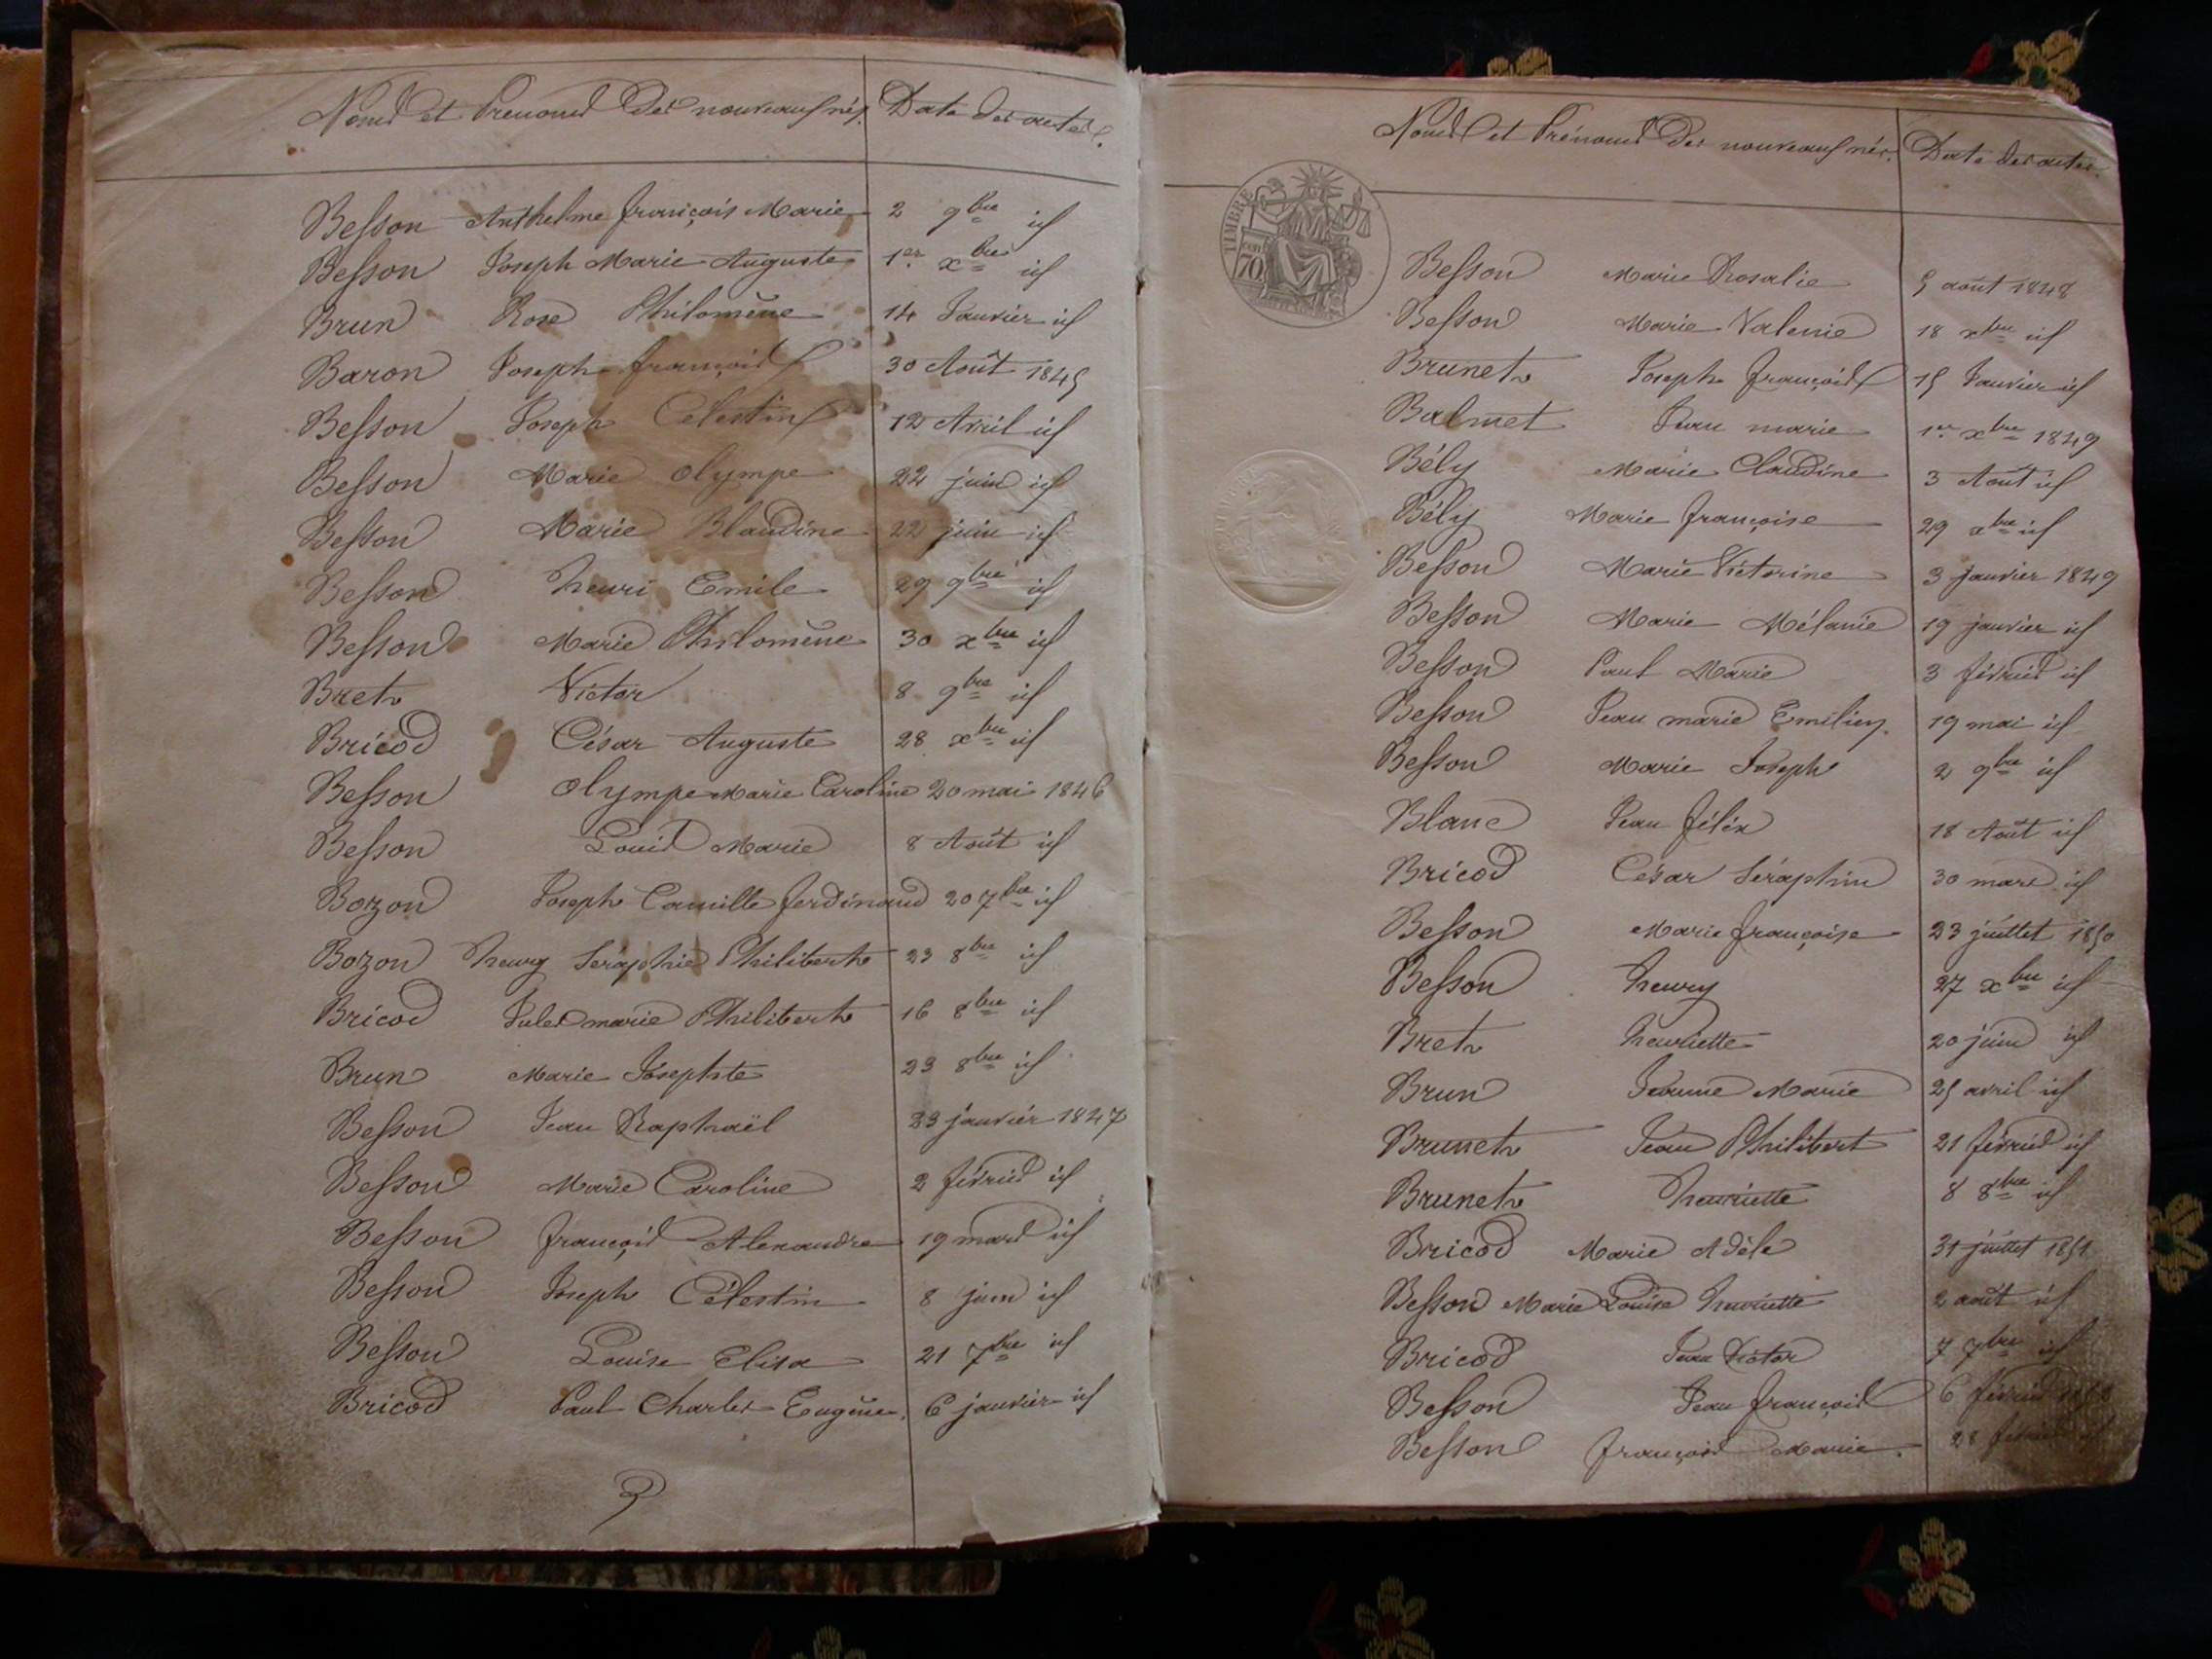 Noms et Prenoms des nouveaux nés. Date des actes.
Besson Anthelme françois Marie 2 9bre id
Besson Joseph Marie Auguste 1er xbre id
Brun Rose Philomène 14 Janvier id
Baron Joseph françois 30 Août 1845
Besson Joseph Celestin 12 Avril id
Besson Marie Olympe 22 juin id
Besson Marie Blandine 22 juin id
Besson henri Emile 29 9bre id
Besson Marie Philomène 30 xbre id
Bret Victor 8 9bre id
Bricod César Auguste 28 xbre id
Besson Olympe Marie Caroline 20 mai 1846
Besson Louis Marie 8 Août id
Bozon Joseph Camille ferdinand 20 7bre id
Bozon henry Séraphie Philibert 23 8bre id
Bricod Jules marie Philibert 16 8bre id
Brun Marie Josephte 23 8bre id
Besson Jean Raphaël 23 janvier 1847
Besson Marie Caroline 2 février id
Besson françois Alexandre 19 mars id
Besson Joseph Célestin 8 juin id
Besson Louise Elisa 21 7bre id
Bricod Paul Charles Eugène. 6 janvier id
Noms et Prénoms des nouveaux nés. Date des actes.
TIMBRE
70
Besson Marie Rosalie 5 août 1848
Besson Marie Valerie 18 xbre id
Brunet Joseph françois 15 Janvier id
Balmet Jean marie 1er xbre 1849
Bély Marie Claudine 3 Août id
Bély Marie françoise 29 xbre id
Besson Marie Victorine 3 janvier 1849
Besson Marie Mélanie 19 janvier id
Besson Paul Marie 3 février id
Besson Jean marie Emilien. 19 mai id
Besson Marie Joseph 2 9bre id
Blanc Jean félix 18 Août id
Bricod César Séraphin 30 mars id
Besson Marie françoise 23 juillet 1850
Besson henry 27 xbre id
Bret henriette 20 juin id
Brun Jeanne Marie 25 avril id
Brunet Jean Philibert 21 février id
Brunet henriette 8 8bre id
Bricod Marie Adèle 31 juillet 1851
Besson Marie Louise henriette 2 août id
Bricod Jean Victor 7 7bre id
Besson Jean françois 6 février
Besson françois Marie. 28 février